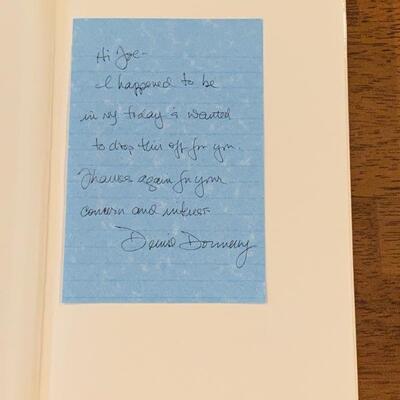 Hi Joe-
I happened to be
in NY today & wanted
to drop this off for you.
Thanks again for your
concern and interest.
Donnelly